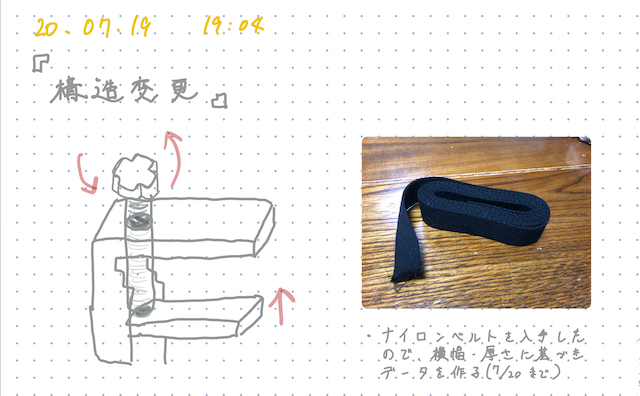 20.07.19 19:04
『構造変更』
・ナイロンベルトを入手した
ので、横幅・厚さに基づき
データを作る(7/20まで)